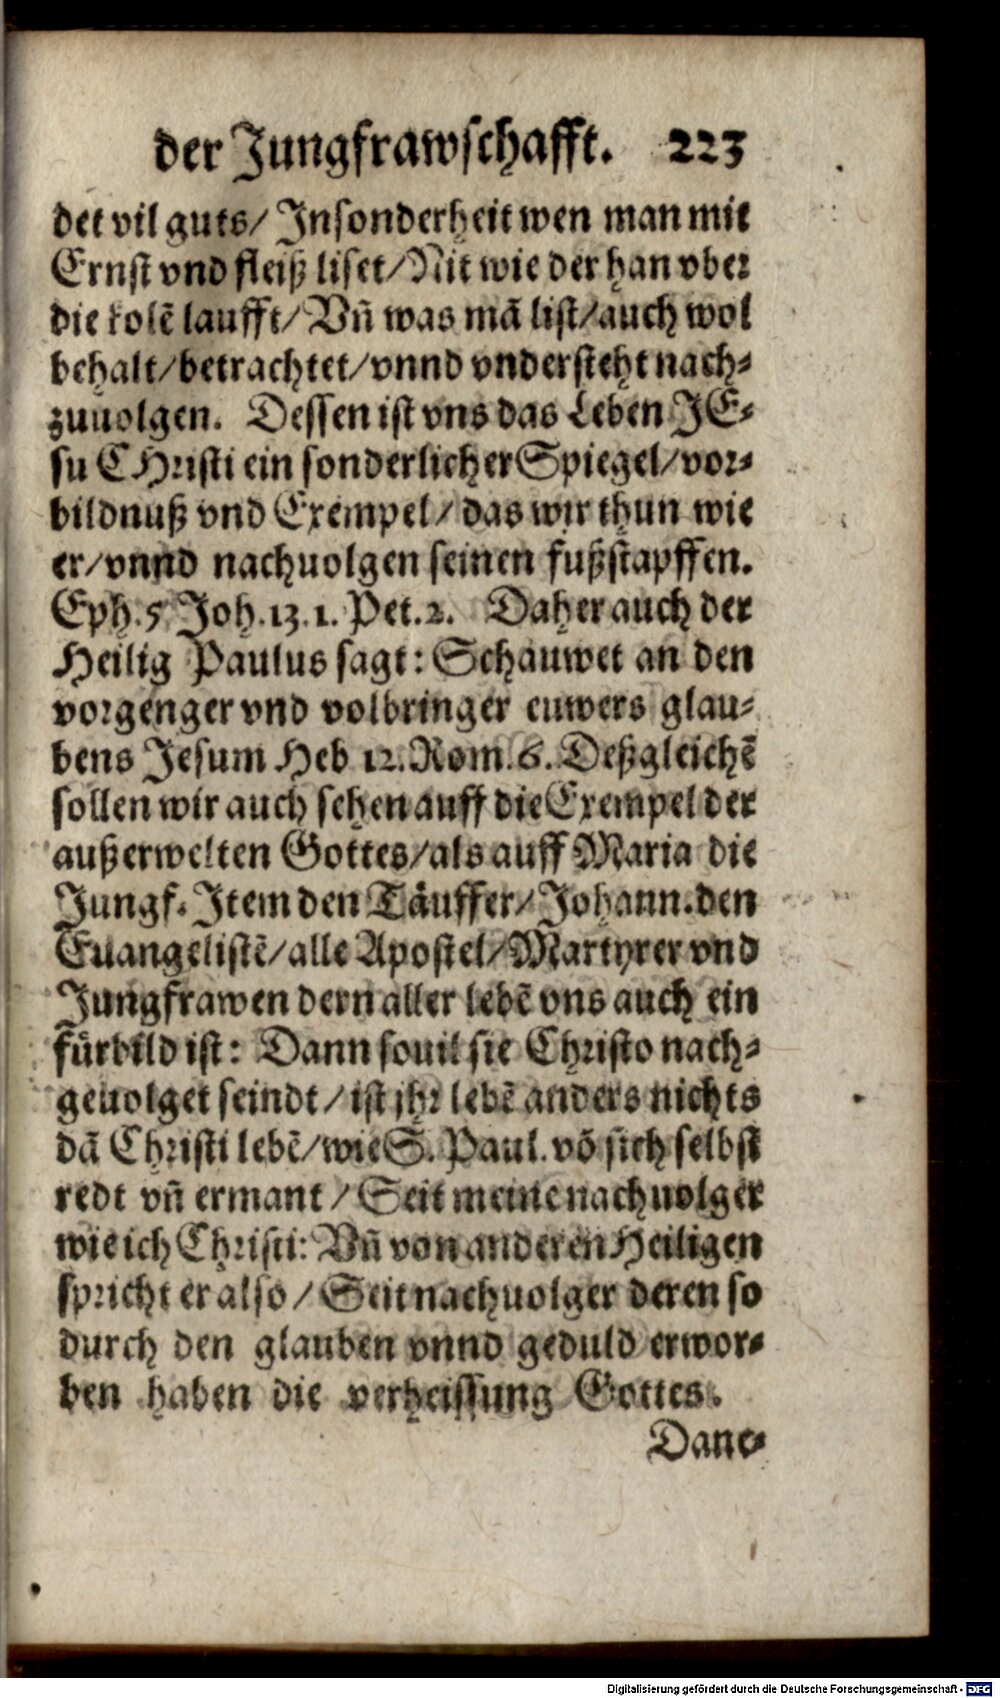 der Jungfrawschafft. 223
det vil guts/ Insonderheit wen man mit
Ernst vnd fleiß liset/Nit wie der han vber
die kolẽ laufft/ Vñ was mã list/auch wol
behalt/betrachtet/vnnd vndersteht nach-
zuuolgen. Dessen ist vns das Leben JE-
su CHristi ein sonderlicher Spiegel/vor-
bildnuß vnd Exempel/ das wir thun wie
er/vnnd nachuolgen seinen fußstapffen.
Eph. 5. Joh. 13. 1. Pet. 2. Daher auch der
Heilig Paulus sagt: Schauwet an den
vorgenger vnd volbringer euwers glau-
bens Jesum Heb 12. Rom. 6. Deßgleichẽ
sollen wir auch sehen auff die Exempel der
außerwelten Gottes/als auff Maria die
Jungf. Item den Täuffer/ Johann. den
Euangelistẽ/alle Apostel/Martyrer vnd
Jungfrawen dern aller lebẽ vns auch ein
fürbild ist: Dann souil sie Christo nach-
geuolget seindt/ ist jhr lebẽ anders nichts
dã Christi lebẽ/wie S. Paul. võ sich selbst
redt vñ ermant/ Seit meine nachuolger
wie ich Christi: Vñ von anderen Heiligen
spricht er also/ Seit nachuolger deren so
durch den glauben vnnd geduld erwor-
ben haben die verheissung Gottes.
Dane-
Digitalisierung gefördert durch die Deutsche Forschungsgemeinschaft - DFG